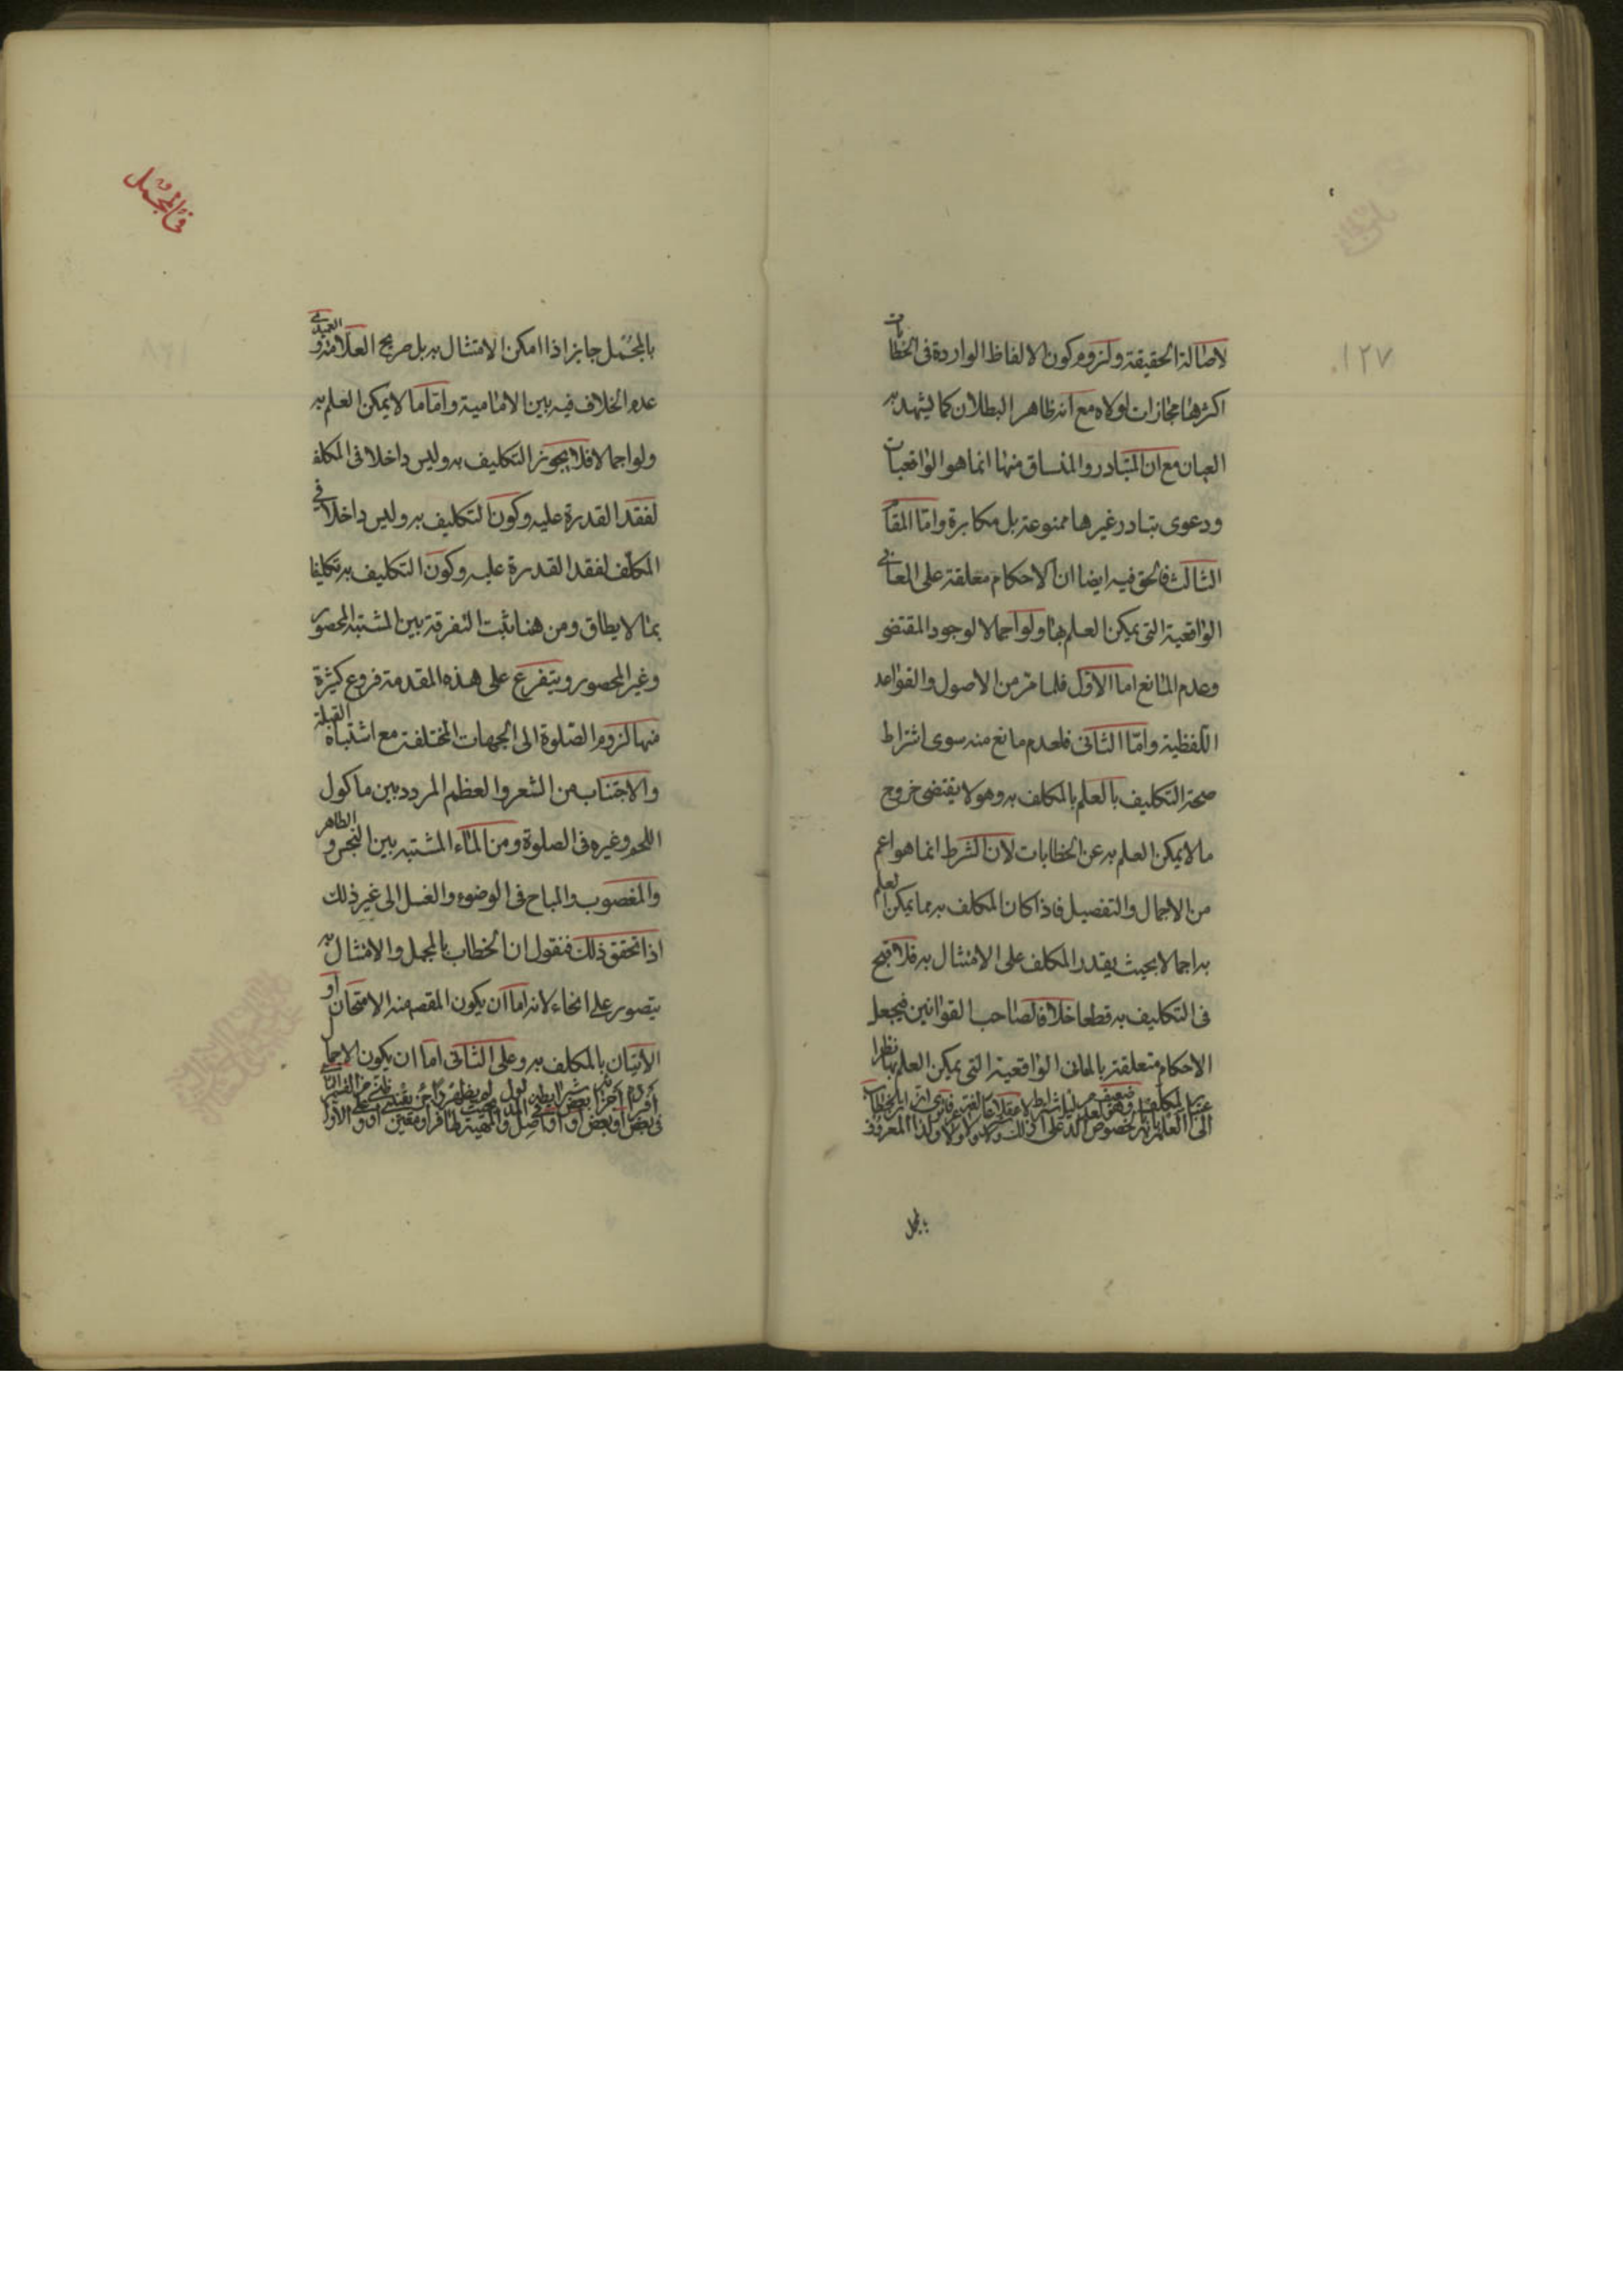 ١٢٧
لاصالة الحقيقة ولزوم كون الالفاظ الواردة فى الخطابات
اكثرها مجازات اولاه مع انه ظاهر البطلان كما يشهد به
العيان مع ان المتبادر والمنساق منها انما هو الواقعيات
ودعوى تبادر غيرها ممنوعة بل مكابرة واما المقام
الثالث فالحق فيه ايضا ان الاحكام معلقة على المعانى
الواقعية التى يمكن العلم بها ولو اجمالا لوجود المقتضى
وعدم المانع اما الاول فلما مر من الاصول والقواعد
اللفظية واما الثانى فلعدم مانع منه سوى اشتراط
صحة التكليف بالعلم بالمكلف به وهو لا يقتضى خروج
ما لا يمكن العلم به عن الخطابات لان الشرط انما هو اعم
من الاجمال والتفصيل فاذا كان المكلف به مما يمكن العلم
به اجمالا بحيث يقدر المكلف على الامتثال به فلا قبح
فى التكليف به قطعا خلافا لصاحب القوانين فيجعل
الاحكام متعلقة بالمعانى الواقعية التى يمكن العلم بها نظرا
بمجمل
فى المجمل
بالمجمل جايز اذا امكن الامتثال به بل صريح العلامة و العميدى
عدم الخلاف فيه بين الامامية واما ما لا يمكن العلم به
ولو اجمالا فلا يجوز التكليف به وليس داخلا فى المكلف
لفقد القدرة عليه وكون التكليف به وليس داخلا فى
المكلف لفقد القدرة عليه وكون التكليف به تكليفا
بما لا يطاق ومن هنا ثبت التفرقة بين المشتبه المحصور
وغير المحصور ويتفرع على هذه المقدمة فروع كثيرة
منها لزوم الصلوة الى الجهات المختلفة مع اشتباه القبلة
والاجتناب من الشعر والعظم المردد بين ماكول
اللحم وغيره فى الصلوة ومن الماء المشتبه بين النجس و الطاهر
والمغصوب والمباح فى الوضوء والغسل الى غير ذلك
اذا تحقق ذلك فنقول ان الخطاب بالمجمل والامتثال به
يتصور على انحاء لانه اما ان يكون المقصم منه الامتحان او
الاتيان بالمكلف به وعلى الثانى اما ان يكون الاجمال